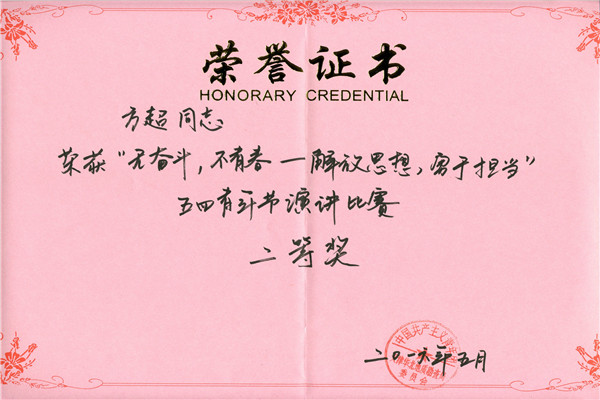 荣誉证书
HONORARY CREDENTIAL
方超同志
荣获“无奋斗，不青春—解放思想，勇于担当”
五四青年节演讲比赛
二等奖
中国共产主义青年团
委员会
二〇一六年五月